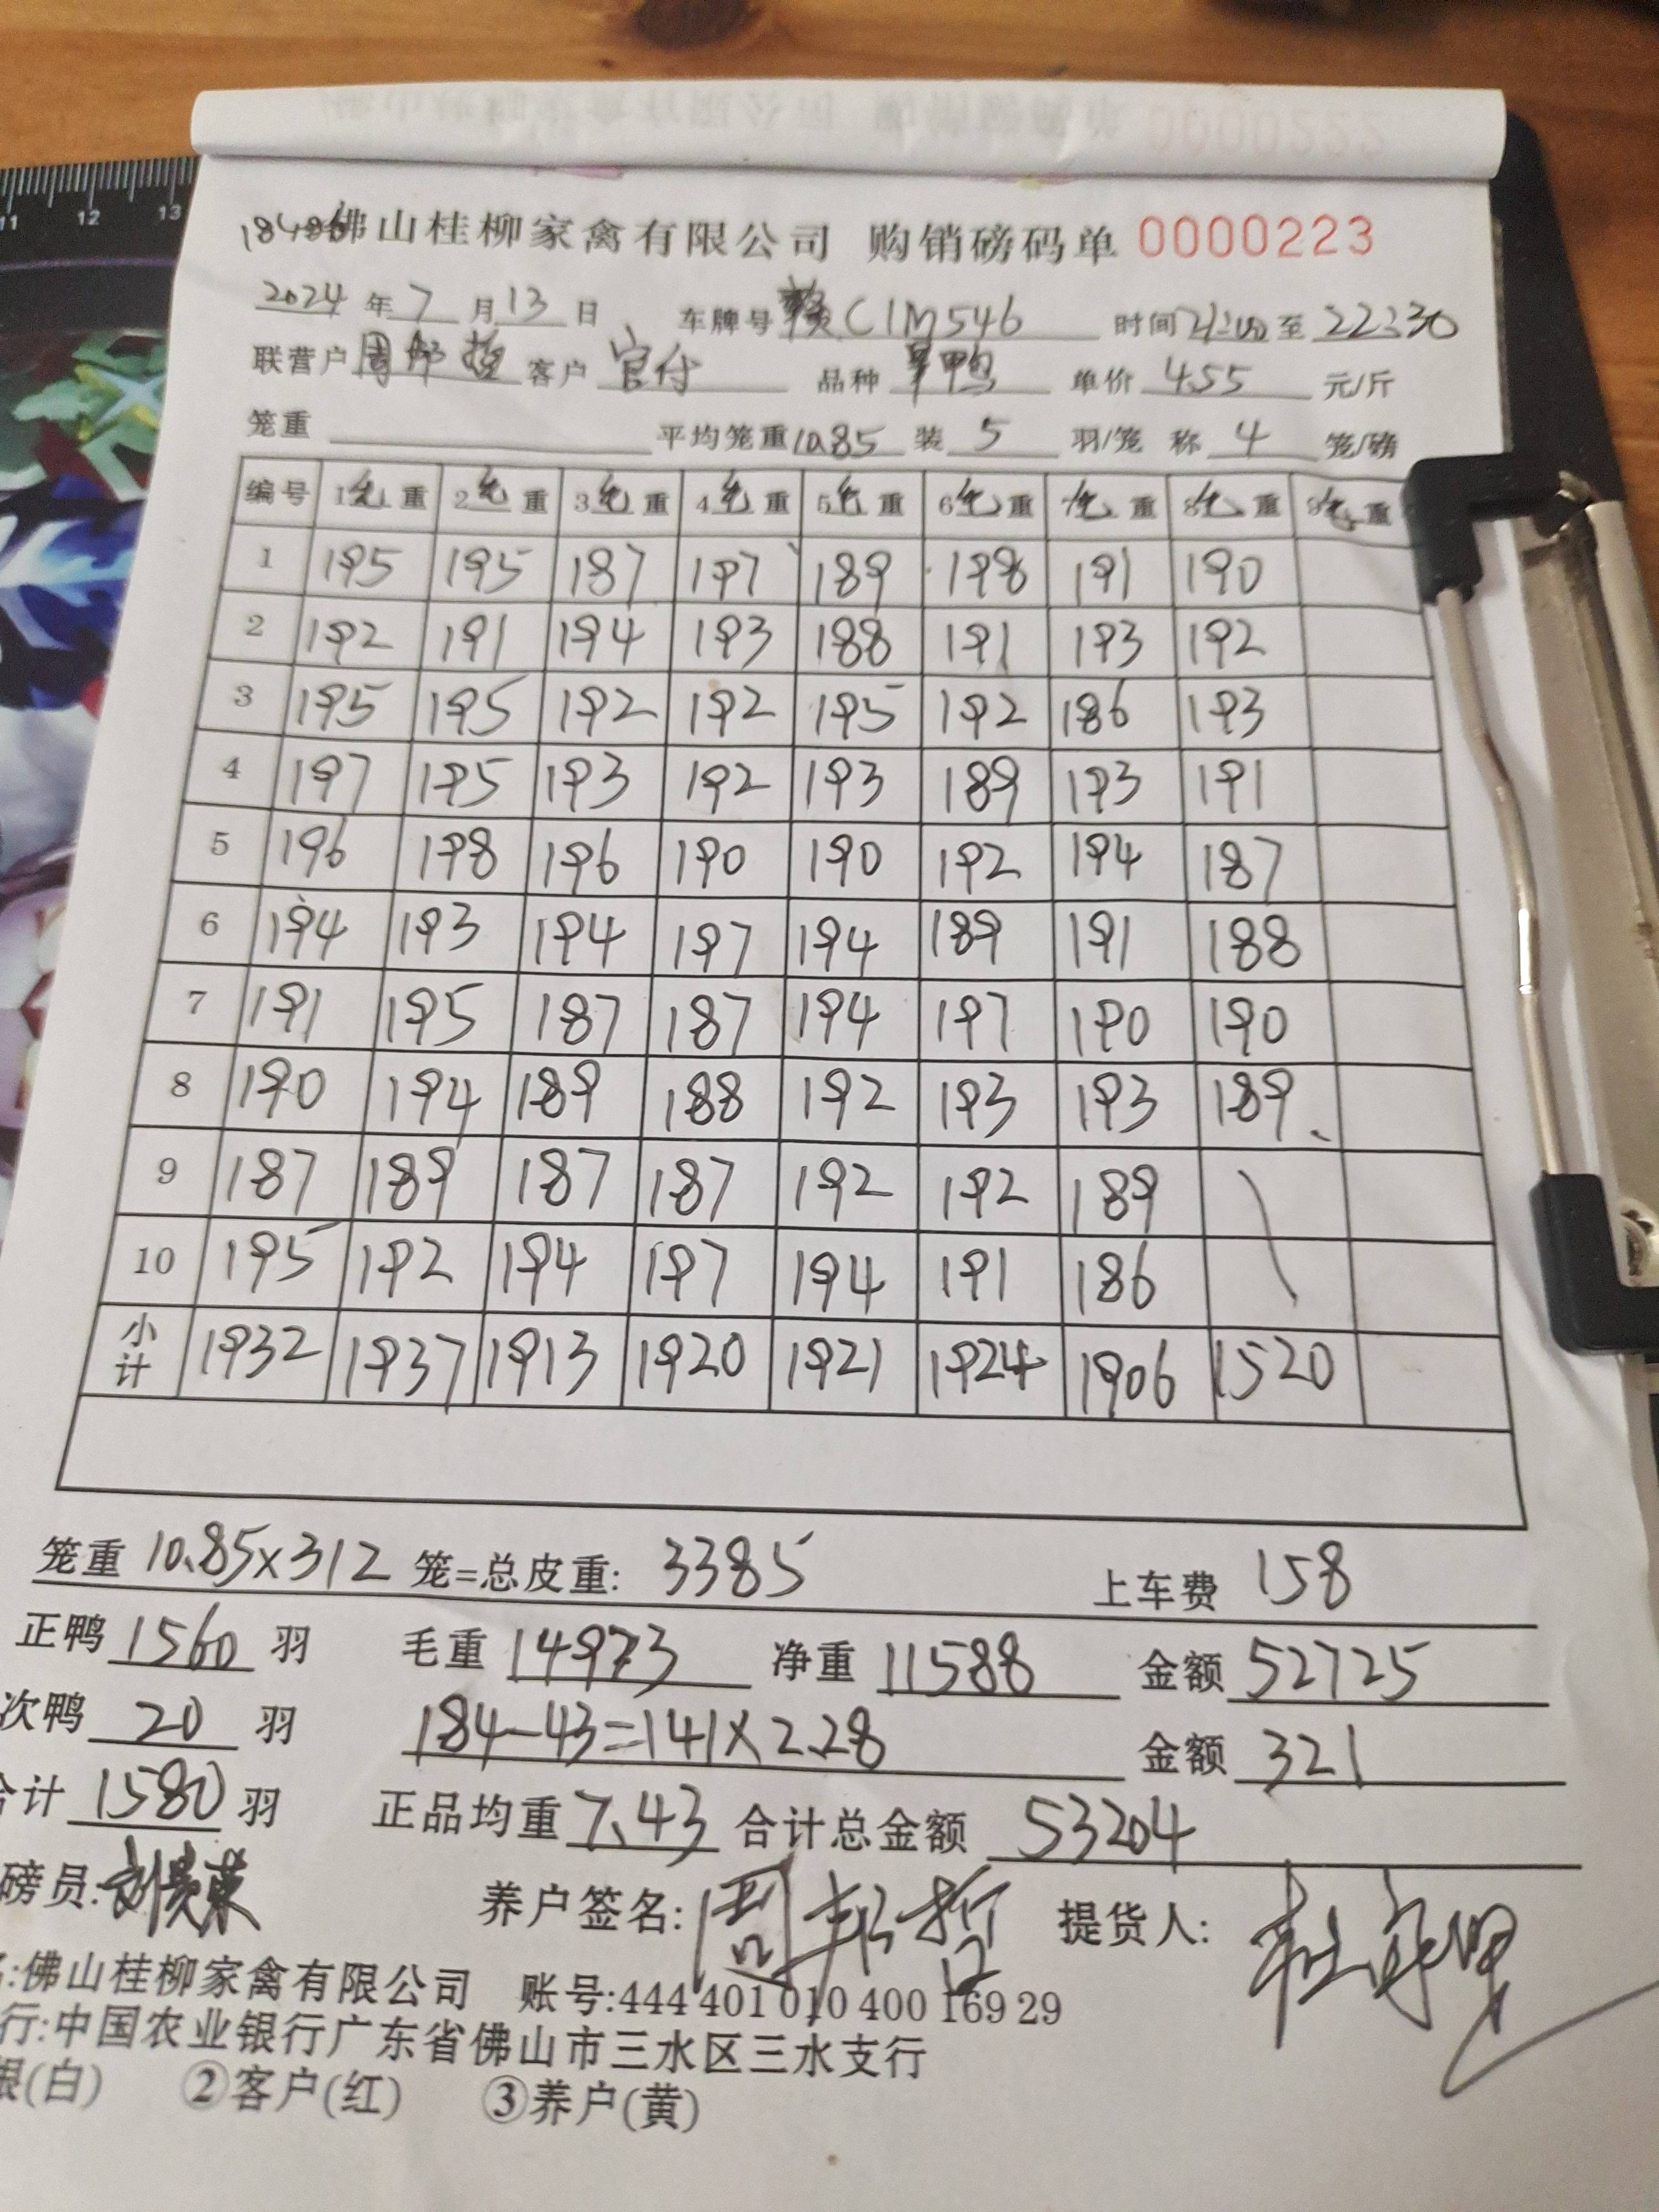 佛山桂柳家禽有限公司 购销磅码单 0000223
2024 年 7 月 13 日 车牌号 赣C1M546 时间 21:00 至 22:30
联营户 周邦哲 客户 官付 品种 旱鸭 单价 4.55 元/斤
笼重 平均笼重 10.85 装 5 羽/笼 称 4 笼/磅
编号 1毛重 2毛重 3毛重 4毛重 5毛重 6毛重 7毛重 8毛重 9毛重
1 195 195 187 197 189 198 191 190
2 192 191 194 193 188 191 193 192
3 195 195 192 192 195 192 186 193
4 197 195 193 192 193 189 193 191
5 196 198 196 190 190 192 194 187
6 194 193 194 197 194 189 191 188
7 191 195 187 187 194 197 190 190
8 190 194 189 188 192 193 193 189
9 187 189 187 187 192 192 189
10 195 192 194 197 194 191 186
小计 1932 1937 1913 1920 1921 1924 1906 1520
笼重 10.85×312 笼=总皮重: 3385 上车费 158
正鸭 1560 羽 毛重 14973 净重 11588 金额 52725
次鸭 20 羽 184-43=141×2.28 金额 321
合计 1580 羽 正品均重 7.43 合计总金额 53204
磅员: 养户签名: 周邦哲 提货人:
:佛山桂柳家禽有限公司 账号:444 401 010 400 169 29
行:中国农业银行广东省佛山市三水区三水支行
(白) ②客户(红) ③养户(黄)